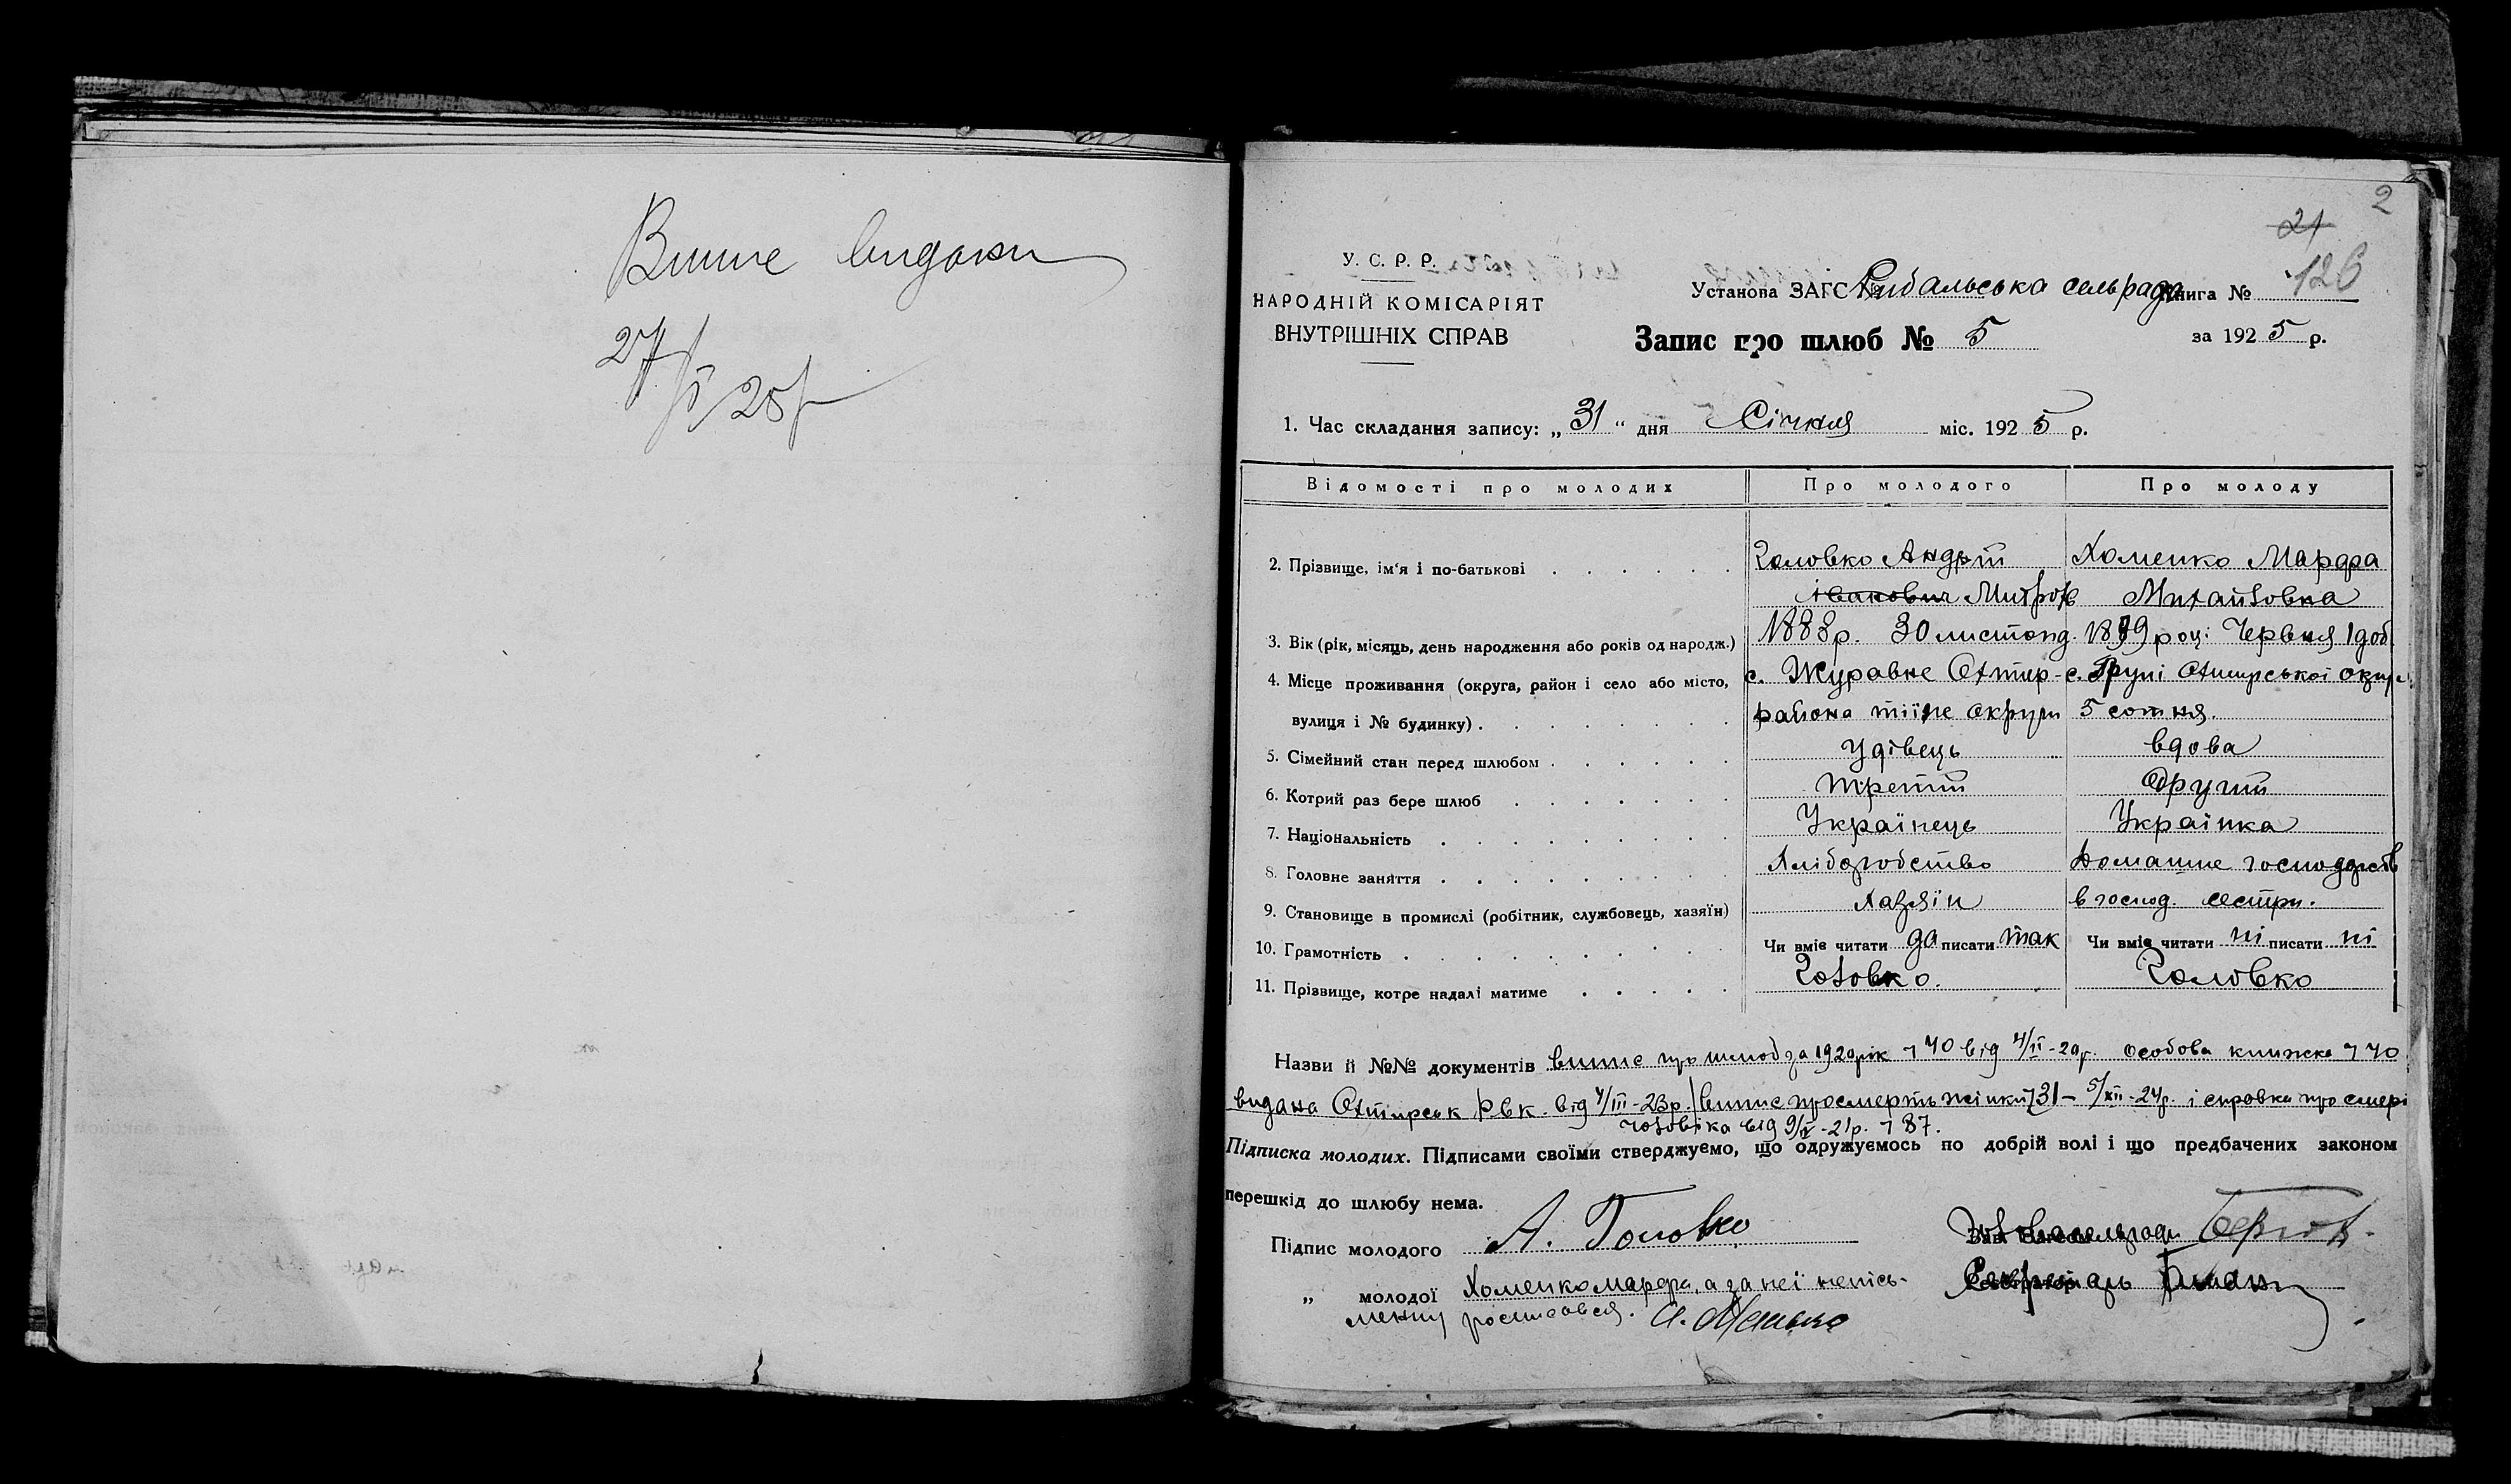 Випис видани
27/I 25р
2
21
126
У. С. Р. Р.
НАРОДНІЙ КОМІСАРІЯТ
ВНУТРІШНІХ СПРАВ
Установа ЗАГС Рибальська сельрада Книга №
Запис про шлюб № 5 за 1925 р.
1. Час складання запису: „31“ дня Січня міс. 1925 р.
Відомості про молодих Про молодого Про молоду
2. Прізвище, ім'я і по-батькові Головко Андрій Хоменко Марфа
Іванович Митроф Михайловна
3. Вік (рік, місяць, день народження або років од народж.) 1888р. 30 листопад. 1889 році Червня 1 доб.
4. Місце проживання (округа, район і село або місто, с. Журавне Охтир- с. Груні Охтирської округ
вулиця і № будинку) района тіїже округи 5 сотня.
5. Сімейний стан перед шлюбом Удівець вдова
6. Котрий раз бере шлюб третій другий
7. Національність Українець Українка
8. Головне заняття Хліборобство Домашнє господарств
9. Становище в промислі (робітник, службовець, хазяїн) Хазяїн в господ. сестри.
10. Грамотність Чи вміє читати да писати так Чи вміє читати ні писати ні
11. Прізвище, котре надалі матиме Головко. Головко
Назви й №№ документів випис про шлюб за 1920рік 140 від 4/II-20р. Особова книжка 140
видана Охтирськ РВК від 4/III-23р. випис про смерть жінки 131 - 5/XII-24р. і справка про смерт
чоловіка від 9/V-21р. 187.
Підписка молодих. Підписами своїми стверджуємо, що одружуємось по добрій волі і що предбачених законом
перешкід до шлюбу нема.
Підпис молодого А. Головко Голова сельради
„ молодої Хоменко Марфа, а за неї непісь- Секретарь
менну росписався.